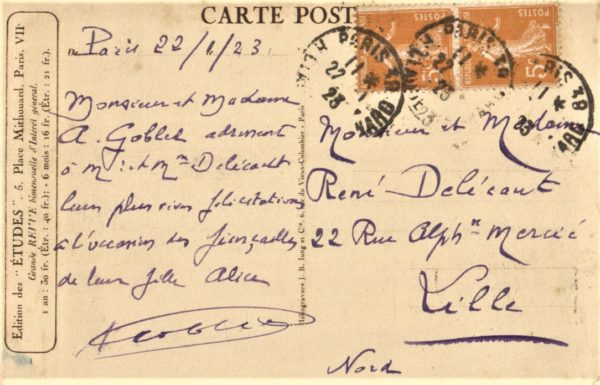 CARTE POST
Paris 22/1/23
Monsieur et Madame
A. Goblet adressent
à Mr et Mme Delécaut
leurs plus vives félicitations
à l'occasion des fiançailles
de leur fille Alice
Monsieur et Madame
René Delécaut
22 Rue Alph
Lille
Nord
Edition des "ÉTUDES", 5, Place Mithouard, Paris, VIIe
Grande REVUE bimensuelle d'intérêt général.
1 an : 30 fr. (Étr. : 40 fr.); - 6 mois : 16 fr. (Étr. : 21 fr.).
Héliogravure J. B. Jung et Cie, 6, rue du Vieux-Colombier - Paris
POSTES
PARIS 38
11 *
22 - 1
23